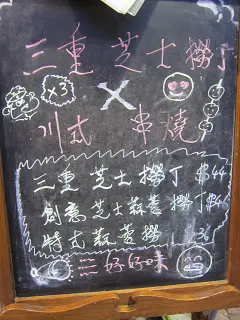 三重芝士撈丁
x3
X
川式 串燒
三重芝士撈丁 $44
創意芝士蒜蓉撈丁 $4
特式蒜蓉撈 36
好好味